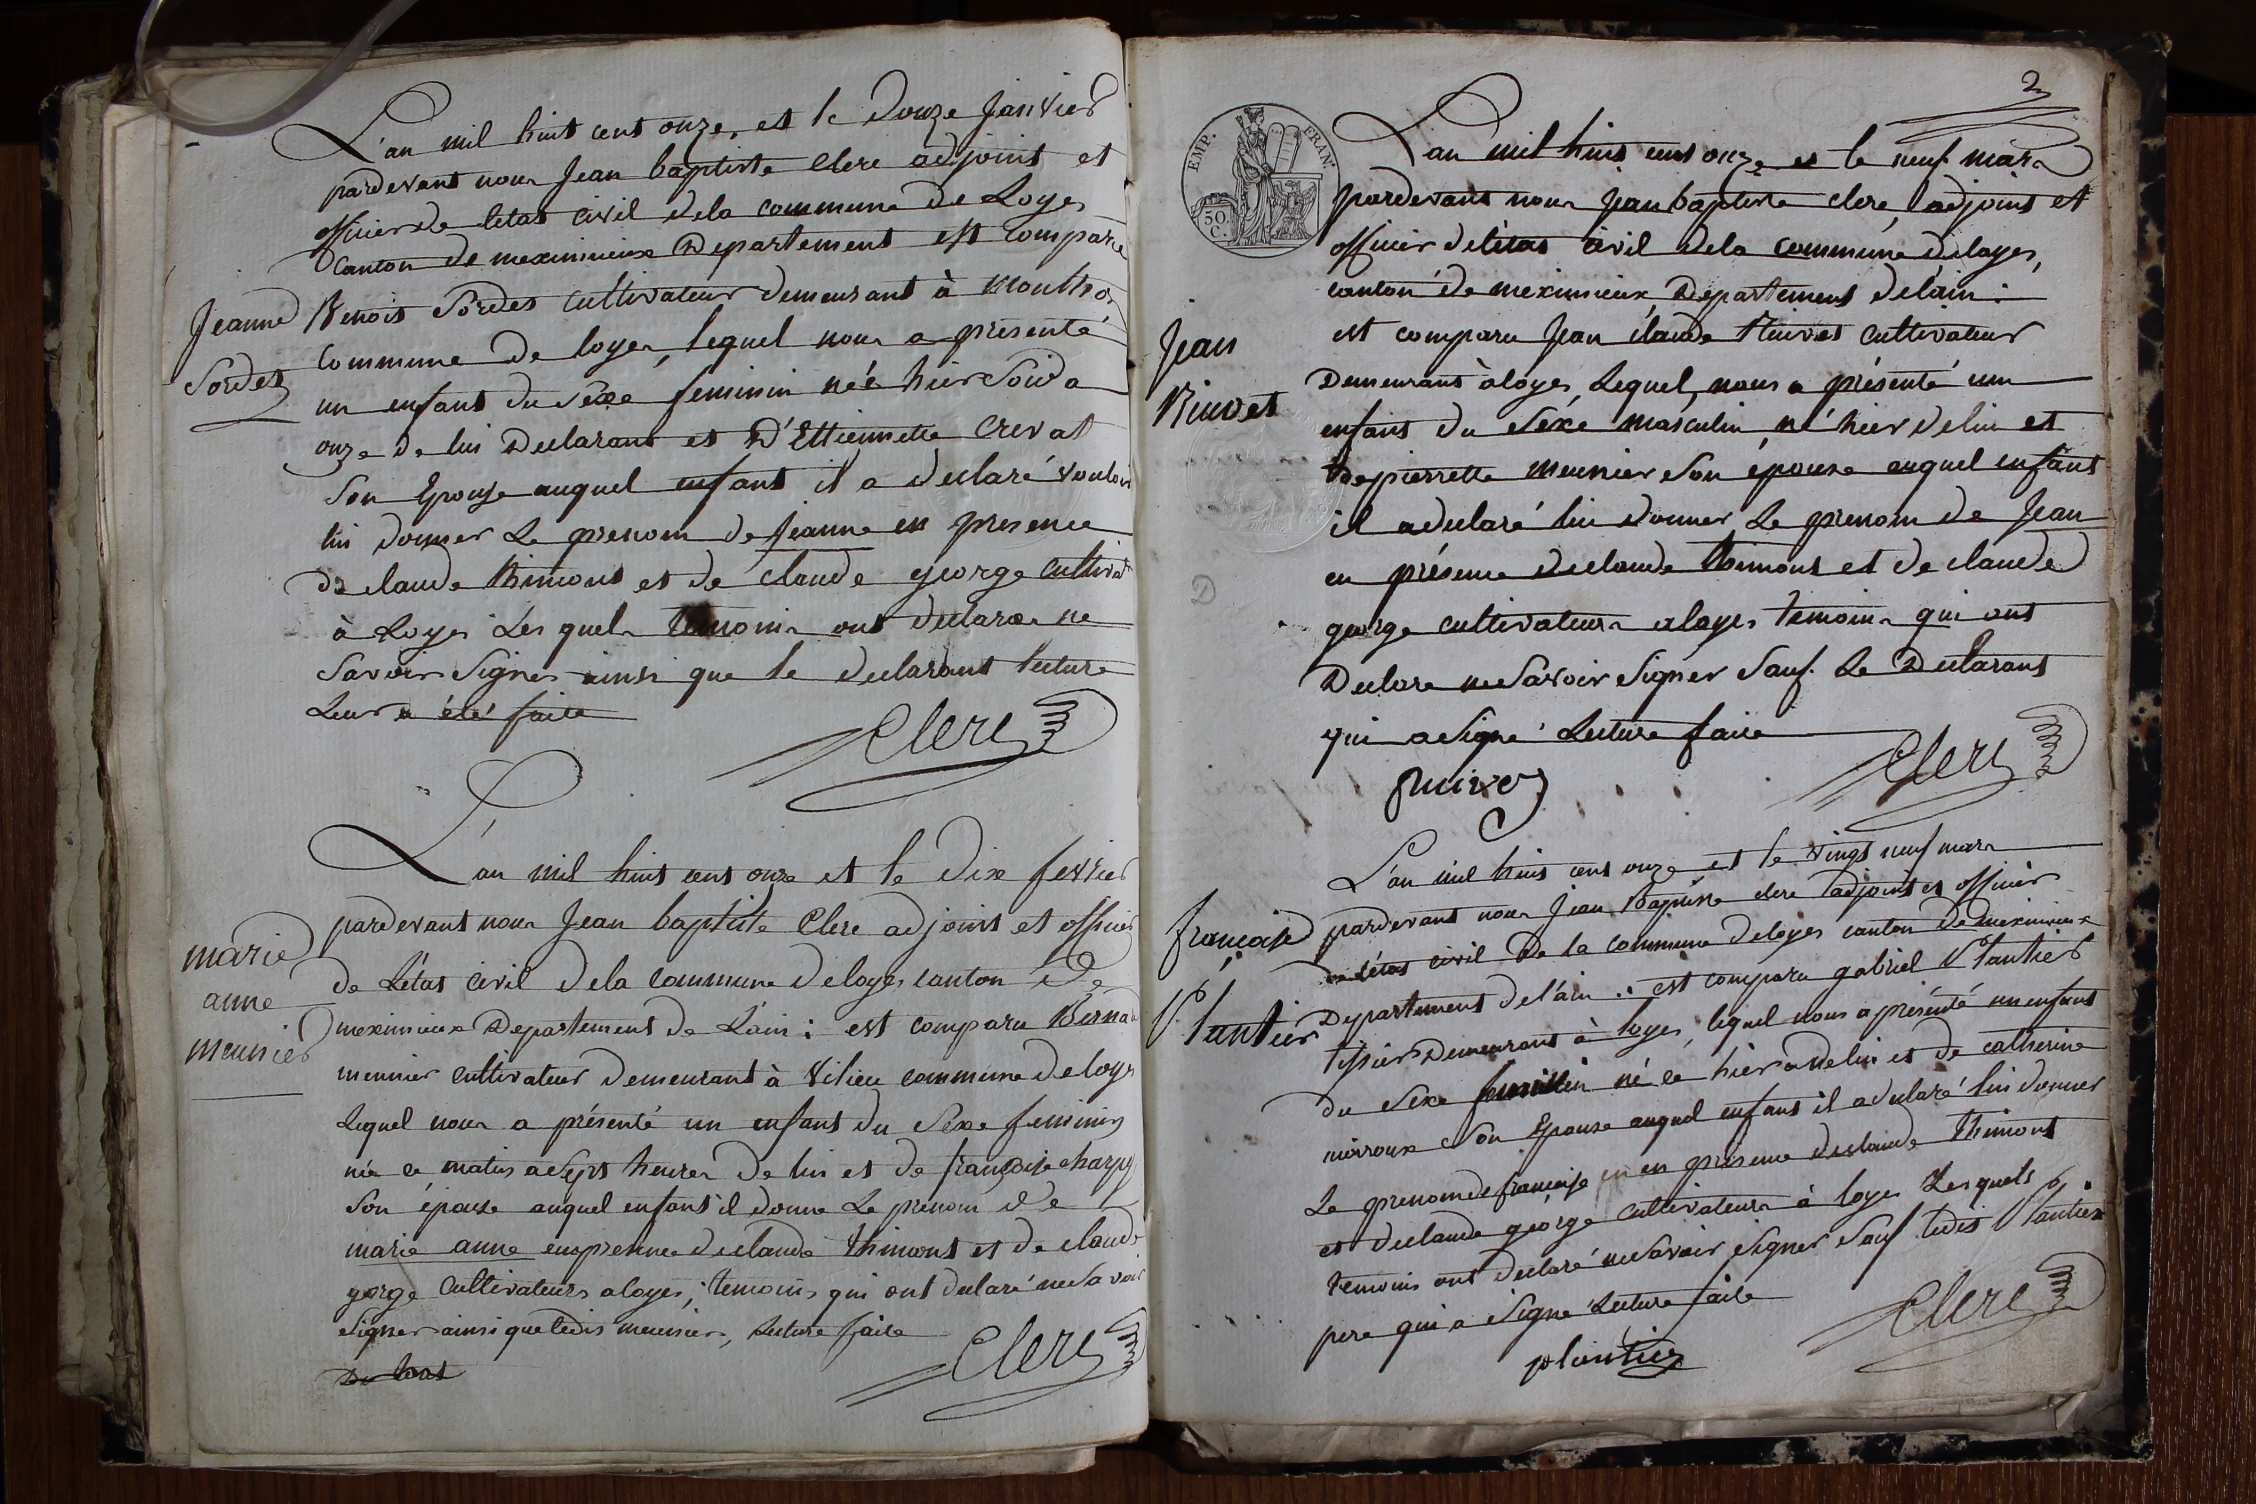 L'an mil huit cent onze, et le Douze Janvier
pardevant nous Jean baptiste Clerc adjoint et
officier de létat civil dela commune de Loyes
Canton de meximieux Departement est Comparu
Jeanne
Sordet
Benoit Sordet cultivateur demeurant à
Commune de loyes, lequel nous a présenté
un enfant du Sexe feminin née hier Soir a
onze de lui Declarant et D'Ettiennette Crevat
Son Epouse auquel enfant il a declaré vouloir
lui donner Le prenom de Jeanne en presence
de claude thimont et de claude george Cultivat
à Loyes Les quels temoins ont declare ne
Savoir Signer ainsi que le declarant lecture
Leur a été faite
Clerc
L'an mil huit cent onze et le Dix fevrier
pardevant nous Jean baptiste Clerc adjoint et officier
marie
anne
meunier
de Létat Civil dela Commune de loyes canton De
meximieux Departement de Lain : est comparu
meunier cultivateur Demeurant à Vilieu commune de loyes
Lequel nous a présenté un enfant du Sexe feminin
née ce matin a Sept heures de lui et de françoise
Son épouse auquel enfant il donne Le prenom de
marie anne en presence de claude thimont et de claude
george Cultivateurs a loyes, temoins qui ont declaré ne Savoir
Signer ainsi que ledit meunier, Lecture faite
Clerc
2
EMP. FRAN.
50 C.
L'an mil huit cent onze et le neuf mars
pardevant nous Jean baptiste clerc, adjoint et
officier de létat civil dela commune de loyes,
canton de meximieux Departement de lain :
Jean
Ruivet
est comparu Jean claude Ruivet cultivateur
Demeurant à loyes Lequel, nous a présenté un
enfant du Sexe masculin né hier de lui et
de pierrette meunier Son épouse auquel enfant
il a declaré lui donner Le prenom de Jean
en présence de claude thimont et de claude
george cultivateurs a loyes temoins qui ont
Declare ne Savoir Signer Sauf Le Declarant
qui a Signé Lecture faite
Clerc
Ruivet
L'an mil huit cent onze et le vingt neuf mars
françoise
Plantier
pardevant nous Jean Baptiste clerc adjoint et officier
de létat civil De la commune de loyes canton de meximieux
Departement de l'ain : est comparu gabriel Plantier
tissier Demeurant à loyes, lequel nous a présenté un enfant
du Sexe feminin né hier de lui et de catherine
Son Epouse auquel enfant il a declaré lui donner
Le prenom de françoise en presence de claude thimont
et de claude george cultivateurs à loyes Lesquels
temoins ont declaré ne Savoir Signer Sauf ledit Plantier
pere qui a Signé Lecture faite
Clerc
plantier